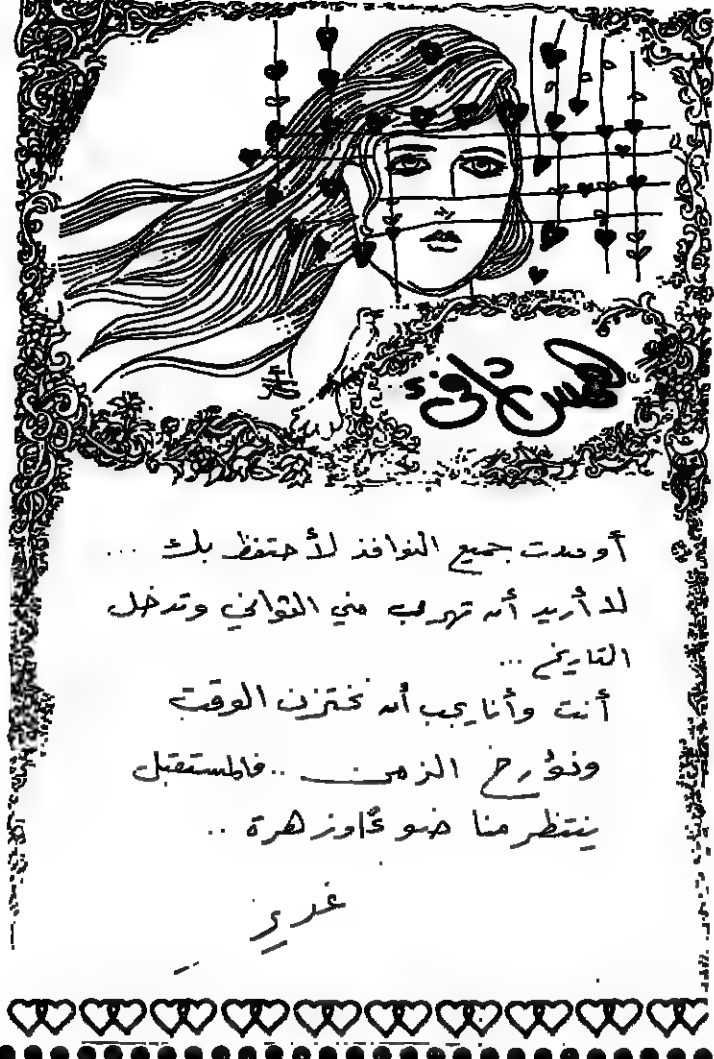 همس دافئ
أوصدت جميع النوافذ لأحتفظ بك ...
لا أريد أن تهرب مني الثواني وتدخل
التاريخ ...
أنت وأنا يجب أن نختزن الوقت
ونؤرخ الزمن .. فالمستقبل
ينتظر منا ضوءًا وزهرة ..
غدير